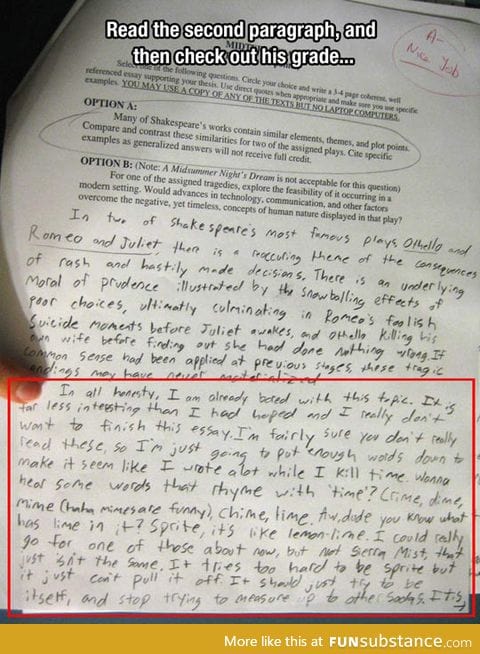 Read the second paragraph, and
then check out his grade...
A-
Nice Job
Select one of the following questions. Circle your choice and write a 3-4 page coherent, well
referenced essay supporting your thesis. Use direct quotes when appropriate and make sure you use specific
examples. YOU MAY USE A COPY OF ANY OF THE TEXTS BUT NO LAPTOP COMPUTERS.
OPTION A:
Many of Shakespeare's works contain similar elements, themes, and plot points.
Compare and contrast these similarities for two of the assigned plays. Cite specific
examples as generalized answers will not receive full credit.
OPTION B: (Note: A Midsummer Night's Dream is not acceptable for this question)
For one of the assigned tragedies, explore the feasibility of it occurring in a
modern setting. Would advances in technology, communication, and other factors
overcome the negative, yet timeless, concepts of human nature displayed in that play?
In two of Shakespeare's most famous plays, Othello and
Romeo and Juliet, there is a reoccuring theme of the consequences
of rash and hastily made decisions. There is an underlying
moral of prudence illustrated by the snowballing effects of
poor choices, ultimatly culminating in Romeo's foolish
suicide moments before Juliet awakes, and Othello killing his
own wife before finding out she had done nothing wrong. If
common sense had been applied at previous stages, these tragic
endings may have never materialized
In all honesty, I am already bored with this topic. It is
far less intersting than I had hoped and I really don't
want to finish this essay. I'm fairly sure you don't really
read these, so I'm just going to put enough words down to
make it seem like I wrote alot while I kill time. Wanna
hear some words that rhyme with 'time'? Crime, dime,
mime (haha mimes are funny), chime, lime. Aw, dude you know what
has lime in it? Sprite, it's like lemon-lime. I could really
go for one of those about now, but not Sierra Mist, that
just isn't the same. It tries too hard to be sprite but
it just can't pull it off. It should just try to be
itself, and stop trying to measure up to other sodas. It is
More like this at FUNsubstance.com